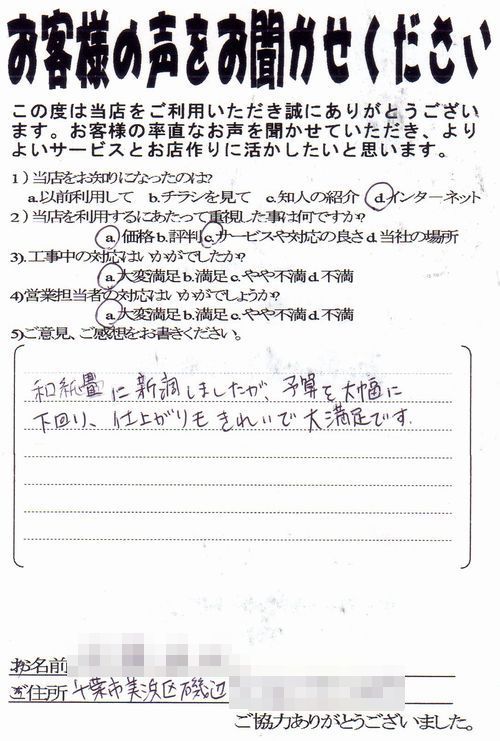 お客様の声をお聞かせください
この度は当店をご利用いただき誠にありがとうござい
ます。お客様の率直なお声を聞かせていただき、より
よいサービスとお店作りに活かしたいと思います。
1)当店をお知りになったのは?
a.以前利用して b.チラシを見て c.知人の紹介 d.インターネット
2)当店を利用するにあたって重視した事は何ですか?
a.価格 b.評判 c.サービスや対応の良さ d.当社の場所
3).工事中の対応はいかがでしたか?
a.大変満足 b.満足 c.やや不満 d.不満
4)営業担当者の対応はいかがでしょうか?
a.大変満足 b.満足 c.やや不満 d.不満
5)ご意見、ご感想をお書きください。
和紙畳に新調しましたが、予算を大幅に
下回り、仕上がりもきれいで大満足です.
お名前
ご住所 千葉市美浜区磯辺
ご協力ありがとうございました。